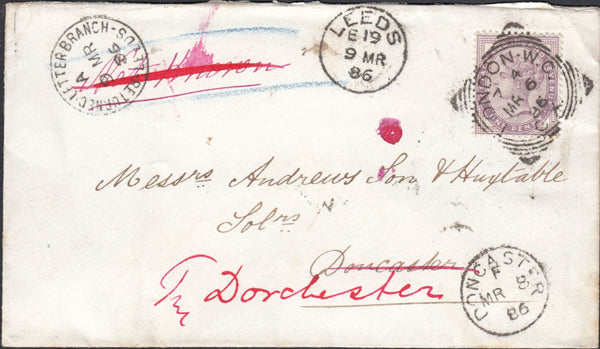 RETURNED-LETTER-BRANCH-S.O.
A
9 MR
86
LEEDS
E 19
9 MR
86
LONDON-W.C
7
MR 6
86
Messrs Andrews Son & Huxtable
Solrs
Doncaster
Try Dorchester
DONCASTER
F
MR 8
86